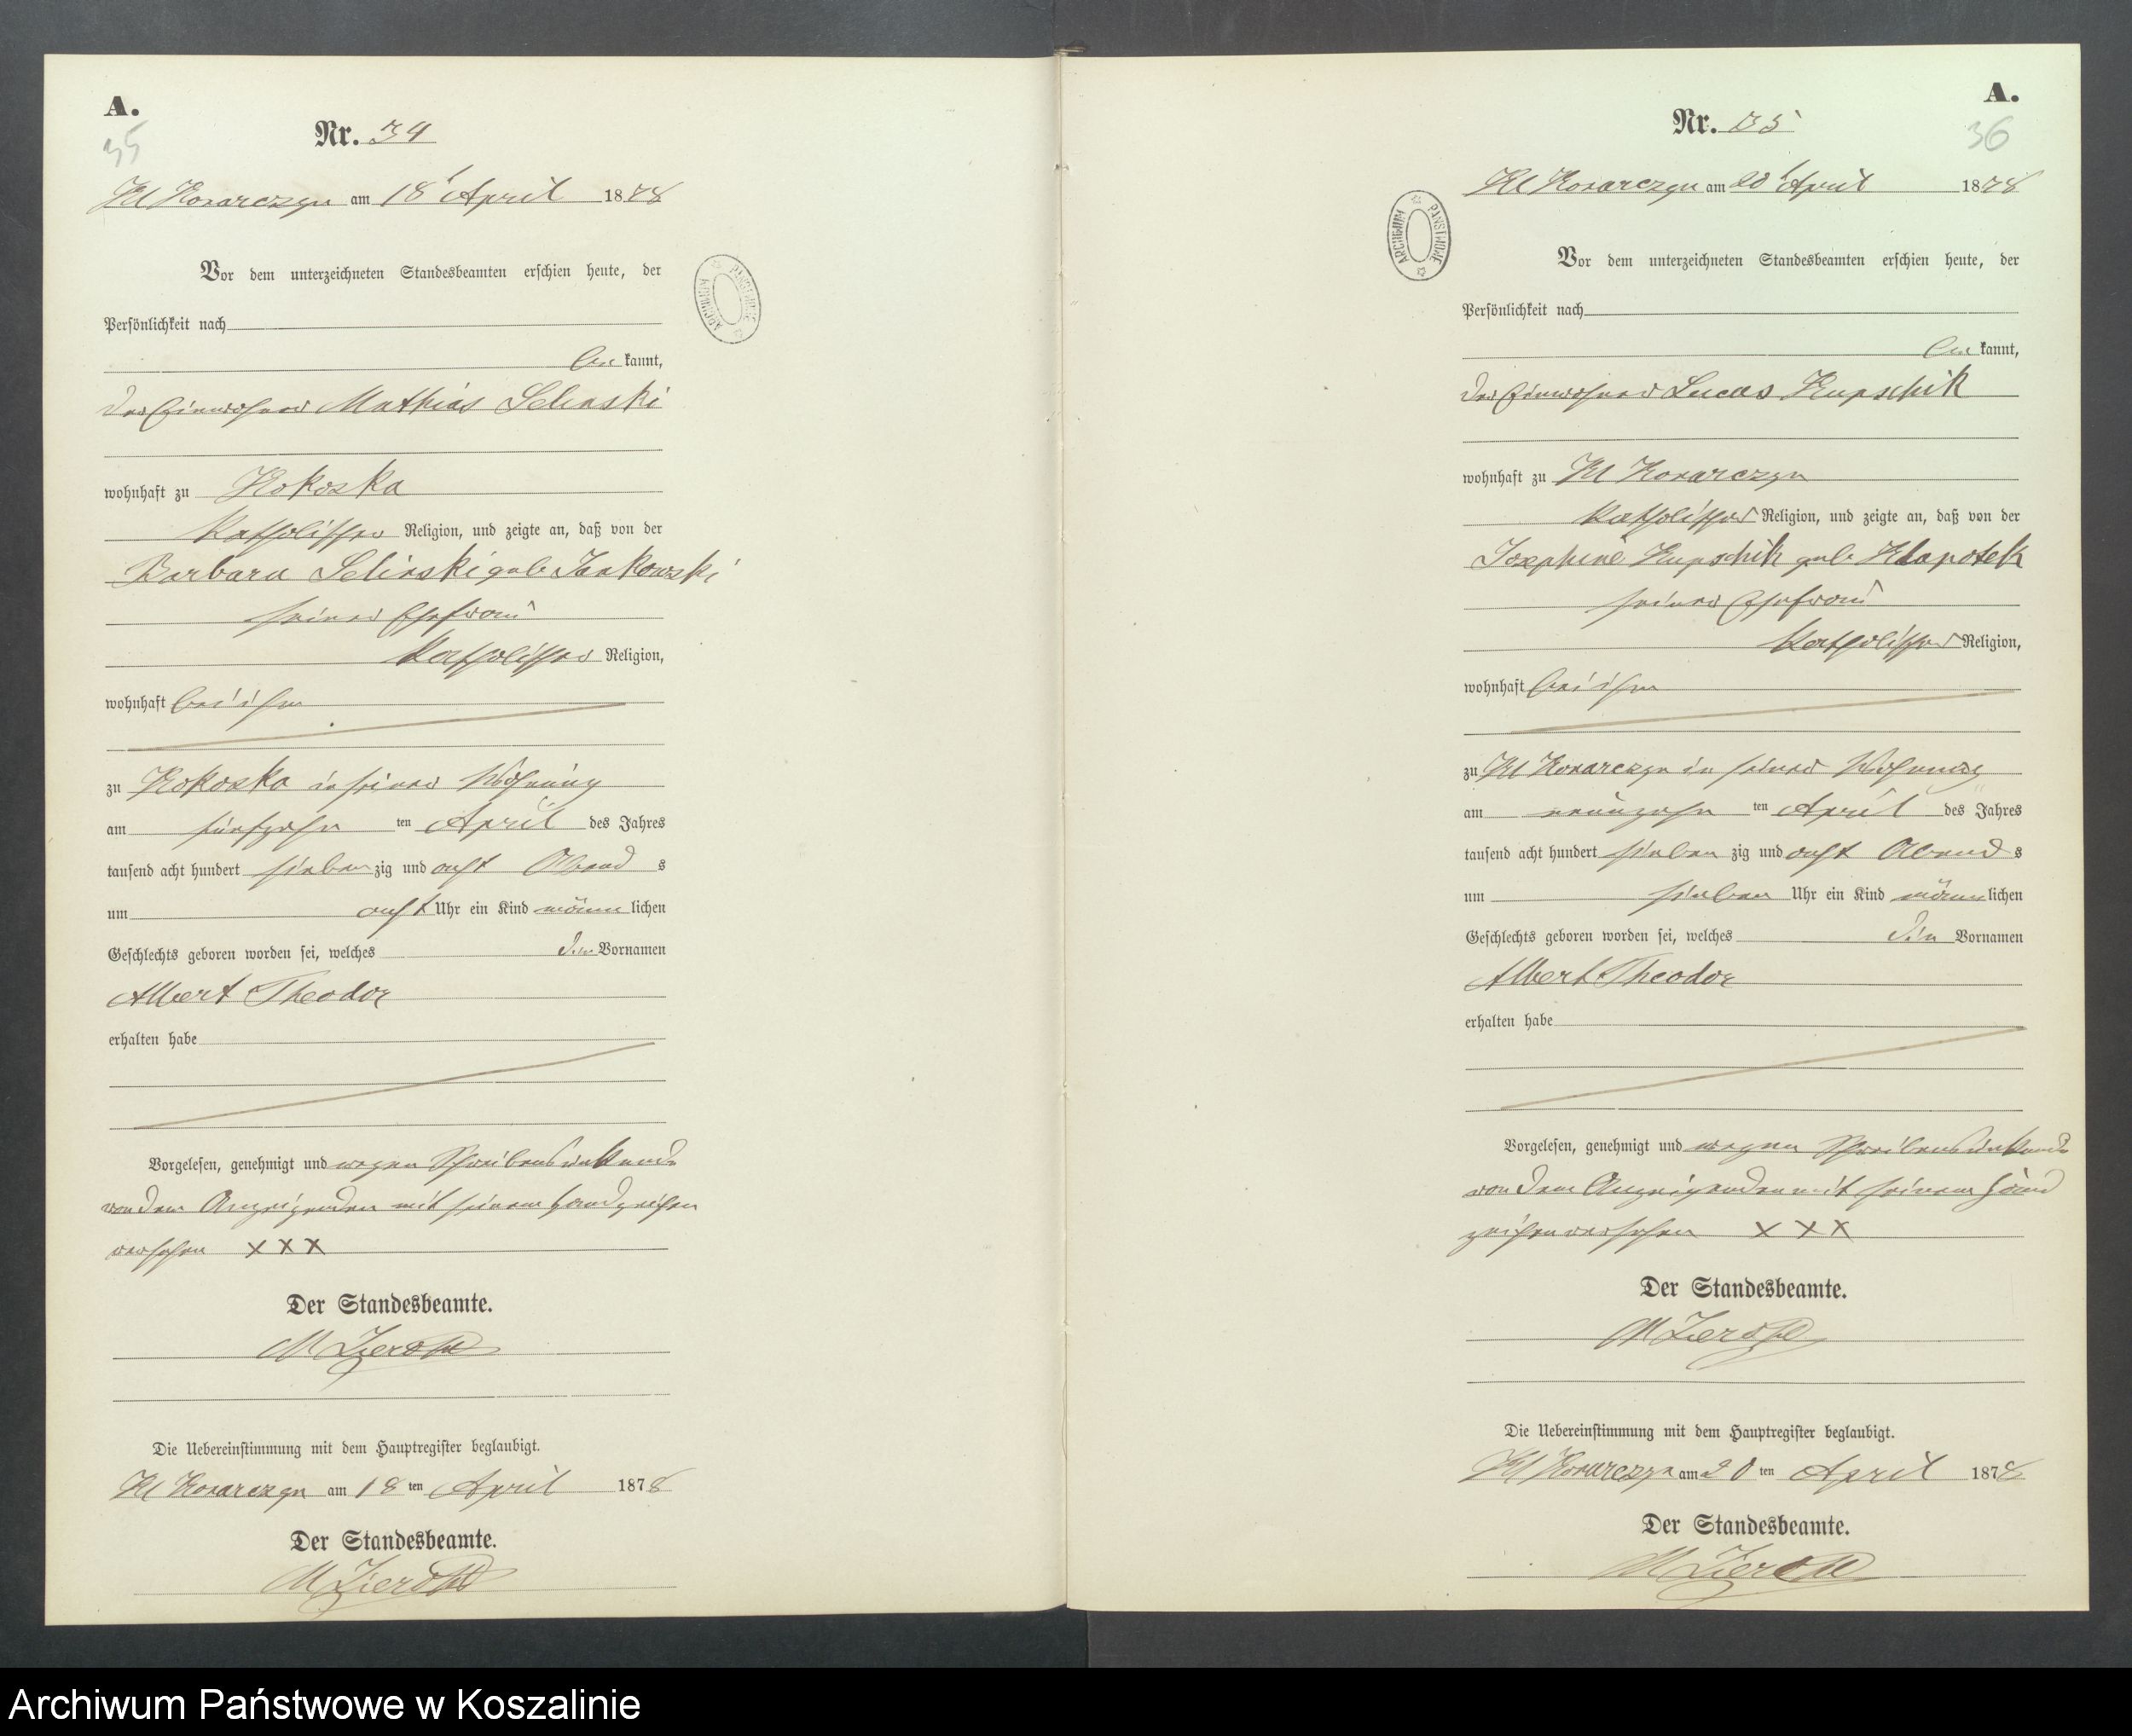 A.
35
Nr. 34
Kl Konarczyn am 18t April 1878
Vor dem unterzeichneten Standesbeamten erschien heute, der
Persönlichkeit nach
be kannt,
der Einwohner Mathias
wohnhaft zu Kokoska
katholischer Religion, und zeigte an, daß von der
Barbara geb Jankowski
seiner Ehefrau
katholischer Religion,
wohnhaft bei ihm
zu Kokoska in seiner Wohnung
am fünfzehn ten April des Jahres
tausend acht hundert sieben zig und acht Abend s
um acht Uhr ein Kind männ lichen
Geschlechts geboren worden sei, welches die Vornamen
Albert Theodor
erhalten habe
Vorgelesen, genehmigt und wegen Schreibensunkunde
von dem Anzeigenden mit seinem Handzeichen
versehen XXX
Der Standesbeamte.
Die Uebereinstimmung mit dem Hauptregister beglaubigt.
Kl Konarczyn am 18 ten April 1878
Der Standesbeamte.
ARCHIWUM PAŃSTWOWE
A.
36
Nr. 35
Kl Konarczyn am 20t April 1878
ARCHIWUM PAŃSTWOWE
Vor dem unterzeichneten Standesbeamten erschien heute, der
Persönlichkeit nach
be kannt,
der Einwohner Lucas Kupschik
wohnhaft zu Kl Konarczyn
katholischer Religion, und zeigte an, daß von der
Josephine Kupschik geb Klapotek
seiner Ehefrau
katholischer Religion,
wohnhaft bei ihm
zu Kl Konarczyn in seiner Wohnung
am neunzehn ten April des Jahres
tausend acht hundert sieben zig und acht Abend s
um sieben Uhr ein Kind männ lichen
Geschlechts geboren worden sei, welches die Vornamen
Albert Theodor
erhalten habe
Vorgelesen, genehmigt und wegen Schreibensunkunde
von dem Anzeigenden mit seinem Hand
zeichen versehen XXX
Der Standesbeamte.
Die Uebereinstimmung mit dem Hauptregister beglaubigt.
Kl Konarczyn am 20 ten April 1878
Der Standesbeamte.
Archiwum Państwowe w Koszalinie